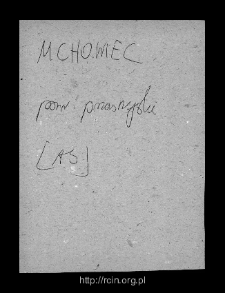 MCHOWIEC
pow. przasnyski
[AS]
http://rcin.org.pl